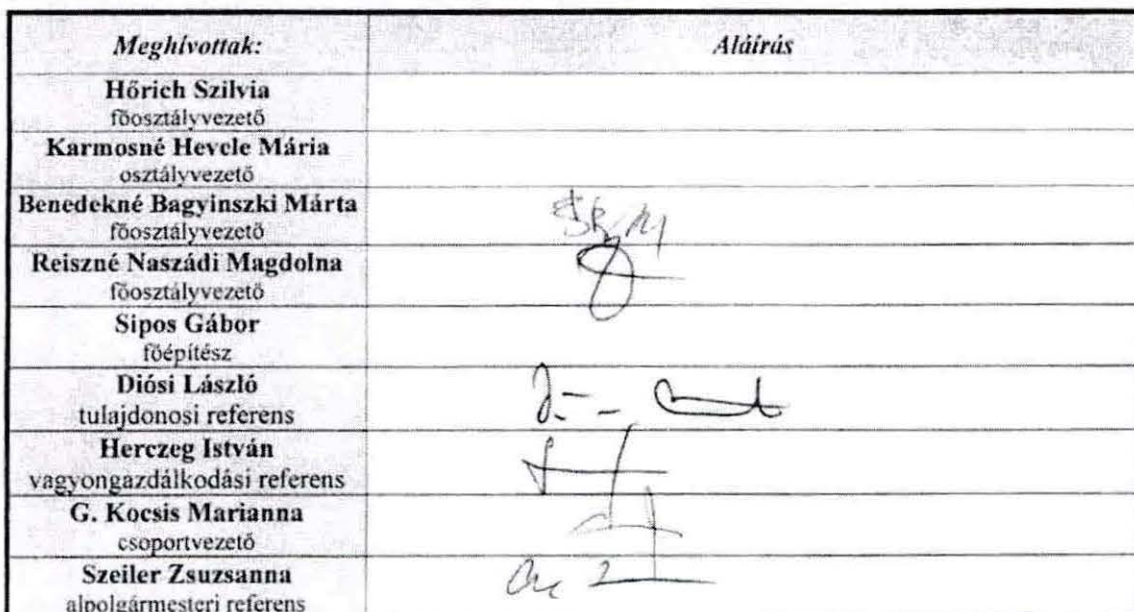 Meghívottak: Aláírás
Hőrich Szilvia
főosztályvezető
Karmosné Hevele Mária
osztályvezető
Benedekné Bagyinszki Márta
főosztályvezető
Reiszné Naszádi Magdolna
főosztályvezető
Sipos Gábor
főépítész
Diósi László
tulajdonosi referens
Herczeg István
vagyongazdálkodási referens
G. Kocsis Marianna
csoportvezető
Szeiler Zsuzsanna
alpolgármesteri referens